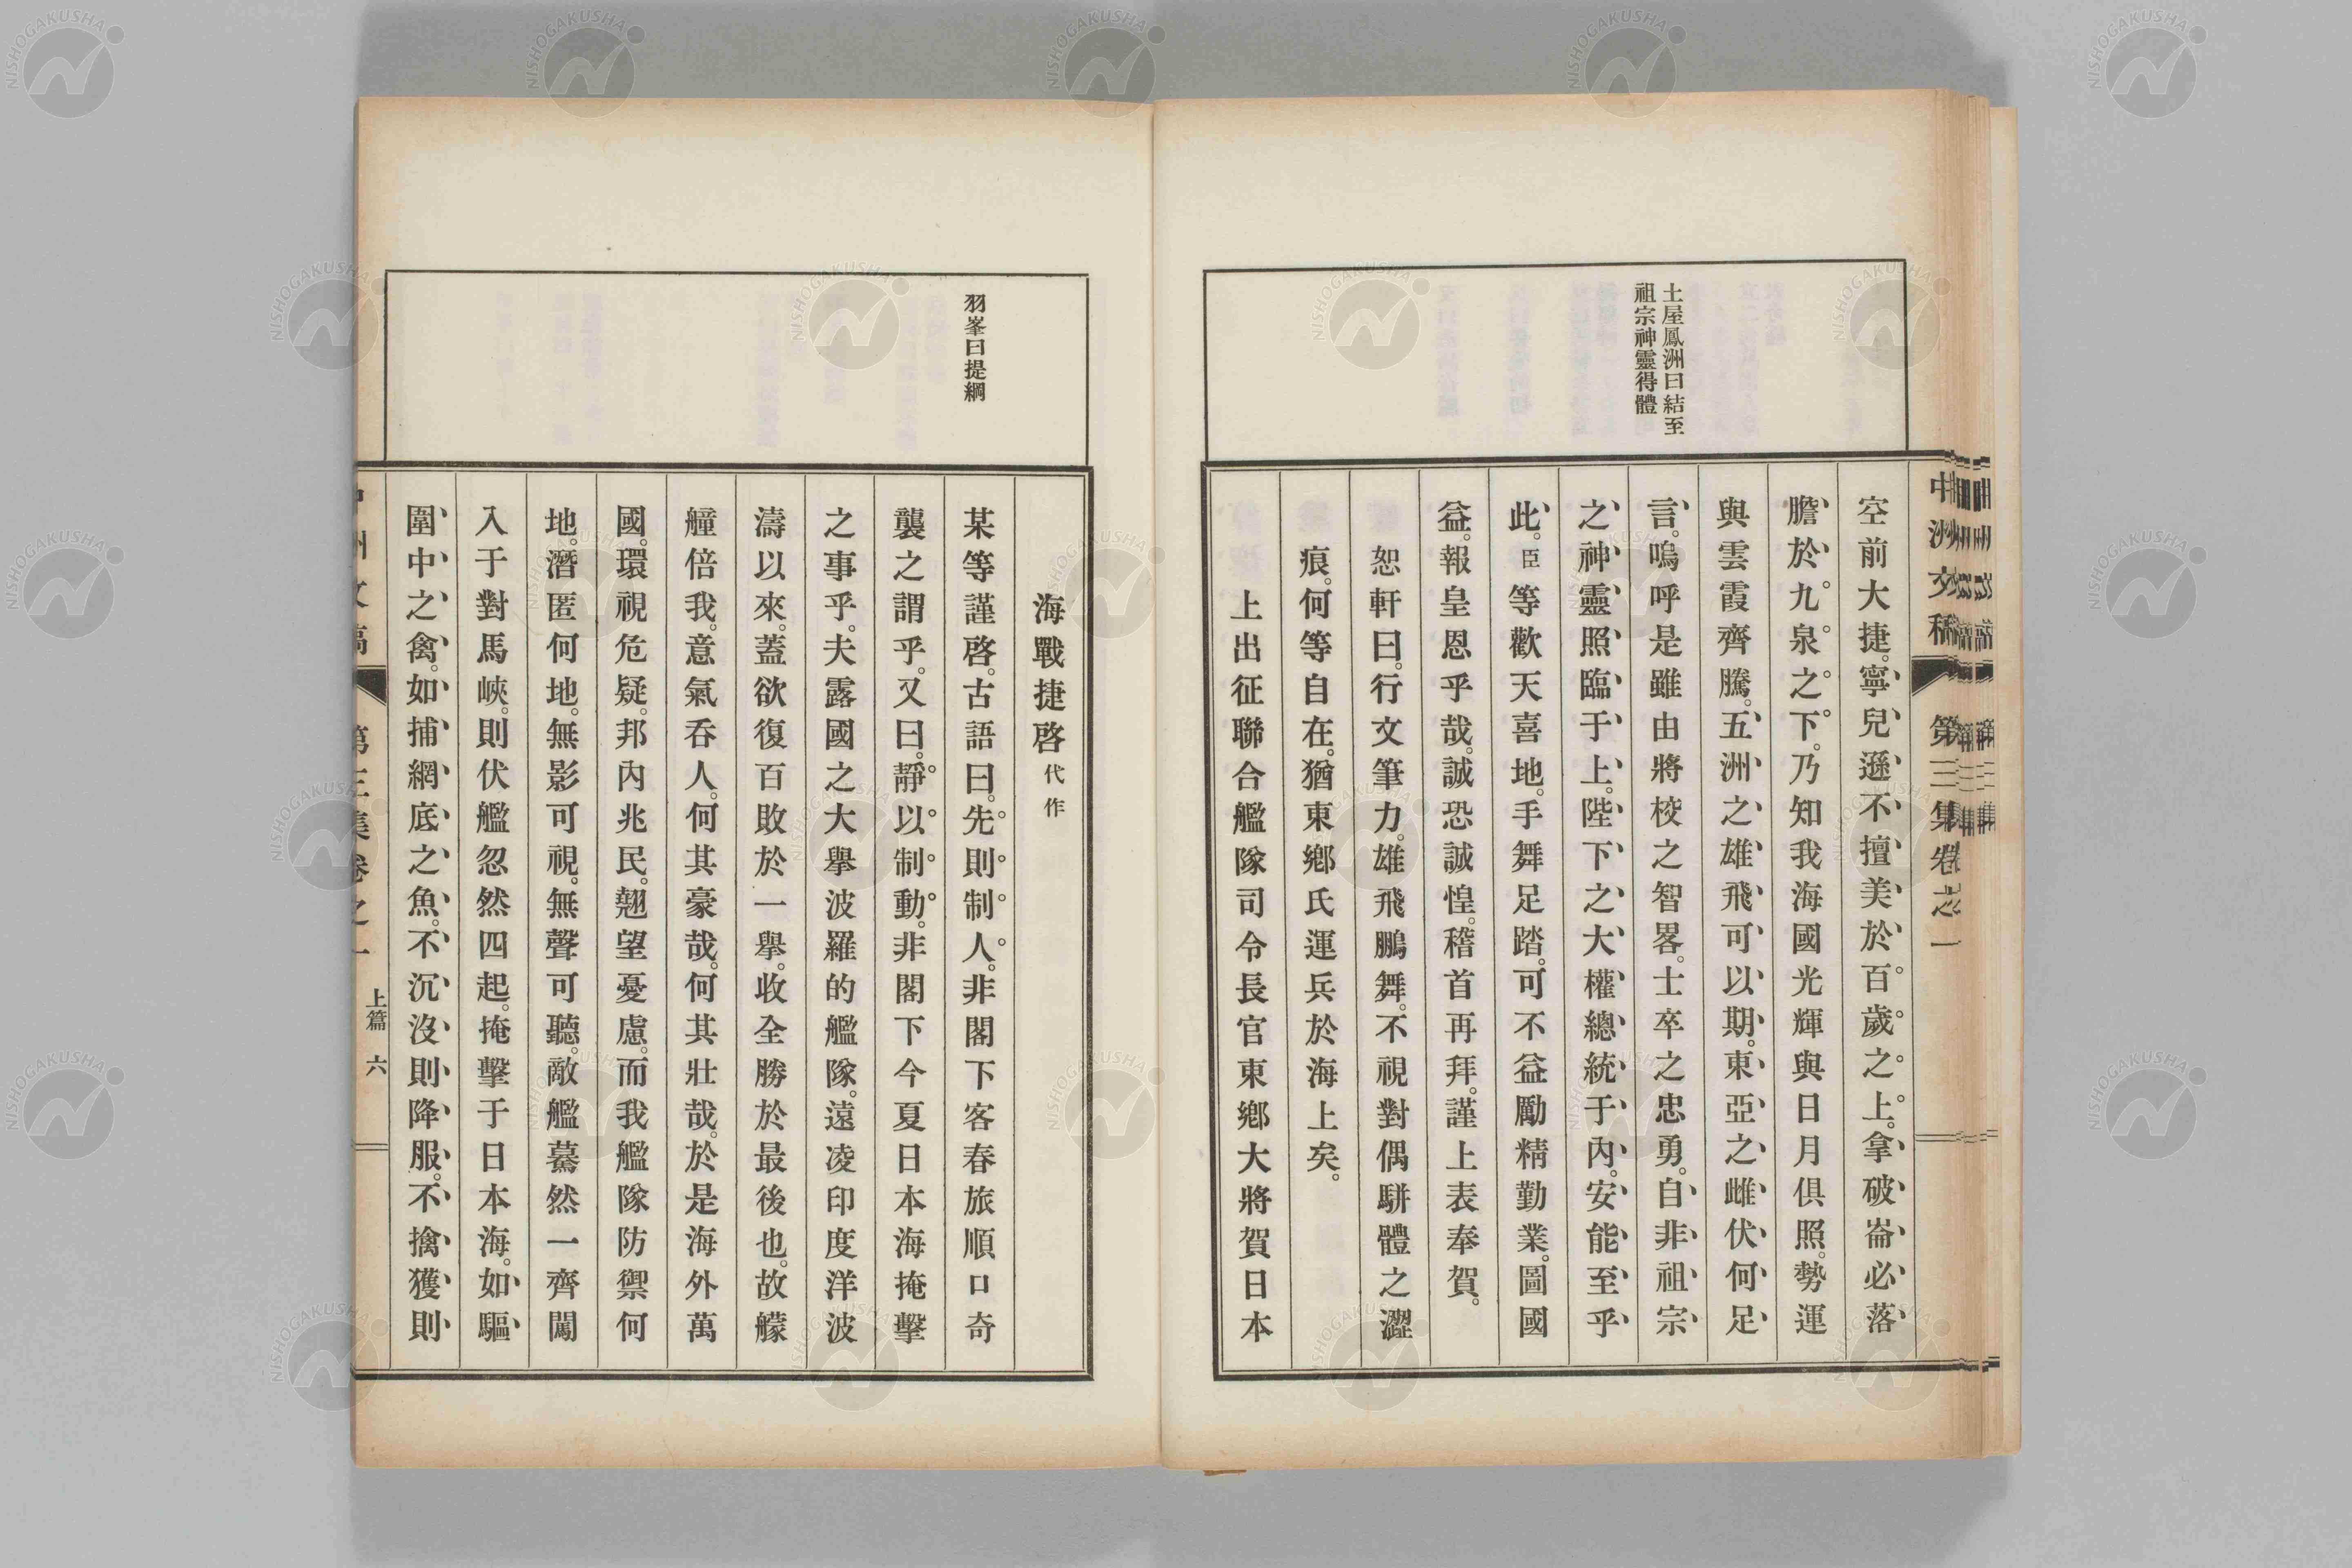 中洲文稿 第三集卷之一
土屋鳳洲曰結至
祖宗神靈得體
空前大捷。寧兒遜不擅美於百歲之上。拿破崙必落
膽於九泉之下。乃知我海國光輝與日月俱照。勢運
與雲霞齊騰。五洲之雄飛可以期。東亞之雌伏何足
言。嗚呼是雖由將校之智畧。士卒之忠勇。自非祖宗
之神靈照臨于上。陛下之大權總統于內。安能至乎
此。臣等歡天喜地。手舞足踏。可不益勵精勤業。圖國
益。報皇恩乎哉。誠恐誠惶。稽首再拜。謹上表奉賀。
恕軒曰。行文筆力。雄飛鵬舞。不視對偶駢體之澀
痕。何等自在。猶東鄕氏運兵於海上矣。
上出征聯合艦隊司令長官東鄕大將賀日本
海戰捷啓 代作
羽峯曰提綱
某等謹啓。古語曰。先則制人。非閣下客春旅順口奇
襲之謂乎。又曰。靜以制動。非閣下今夏日本海掩擊
之事乎。夫露國之大擧波羅的艦隊。遠凌印度洋波
濤以來。蓋欲復百敗於一擧。收全勝於最後也。故艨
艟倍我。意氣呑人。何其豪哉。何其壯哉。於是海外萬
國。環視危疑。邦內兆民。翹望憂慮。而我艦隊防禦何
地。潛匿何地。無影可視。無聲可聽。敵艦驀然一齊闖
入于對馬峽。則伏艦忽然四起。掩擊于日本海。如驅
圍中之禽。如捕網底之魚。不沉沒則降服。不擒獲則
中洲文稿 第三集卷之一 上篇 六
NISHOGAKUSHA